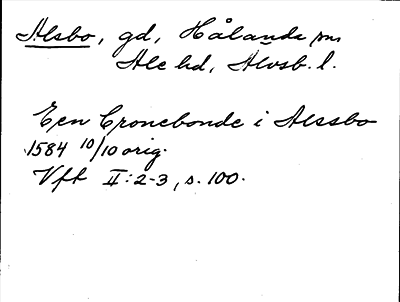 Alsbo, gd, Hålanda sn,
Ale hd, Älvsb. l.
Een Cronebonde i Alssbo
1584 10/10 orig.
Vfk II:2-3, s. 100.